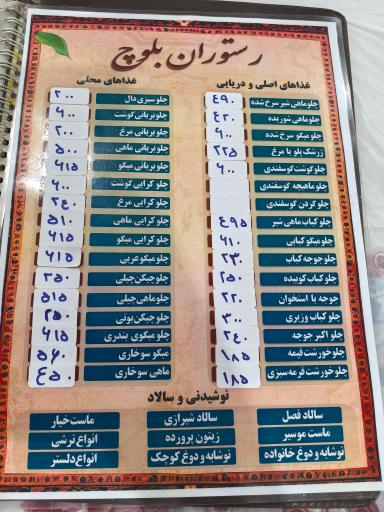 رستوران بلوچ
غذاهای اصلی و دریایی
چلوماهی شیر سرخ شده ٤٩٠
چلوماهی شوریده ٤٢٠
چلو میگو سرخ شده ٦٠٠
زرشک پلو با مرغ ٢٢٥
چلوگوشت گوسفندی ٦٠٠
چلو ماهیچه گوسفندی
چلو گردن گوسفندی
چلوکباب ماهی شیر ٤٩٥
چلومیگو کبابی ٦١٠
چلو جوجه کباب ٢٣٠
چلو کباب کوبیده ٢٥٠
جوجه با استخوان ٢٢٠
چلو کباب وزیری ٣٠٠
چلو اکبر جوجه ٢٤٠
چلو خورشت قیمه ١٨٥
چلو خورشت قرمه سبزی ١٨٥
غذاهای محلی
چلو سبزی دال ٢٠٠
چلو بریانی گوشت ٦٠٠
چلو بریانی مرغ ٢٠٠
چلو بریانی ماهی ٥٠٠
چلو بریانی میگو ٦١٥
چلو کرایی گوشت ٦٠٠
چلو کرایی مرغ ٢٤٠
چلو کرایی ماهی ٥١٠
چلو کرایی میگو ٦١٥
چلو میگو عربی ٦١٥
چلو چیکن چیلی ٢٥٠
چلو ماهی چیلی ٥١٥
چلو چیکن بونی ٢٥٠
چلو میگوی بندری ٦١٥
میگو سوخاری ٥٦٠
ماهی سوخاری ٤٥٠
نوشیدنی و سالاد
سالاد فصل سالاد شیرازی ماست خیار
ماست موسیر زیتون پرورده انواع ترشی
نوشابه و دوغ خانواده نوشابه و دوغ کوچک انواع دلستر